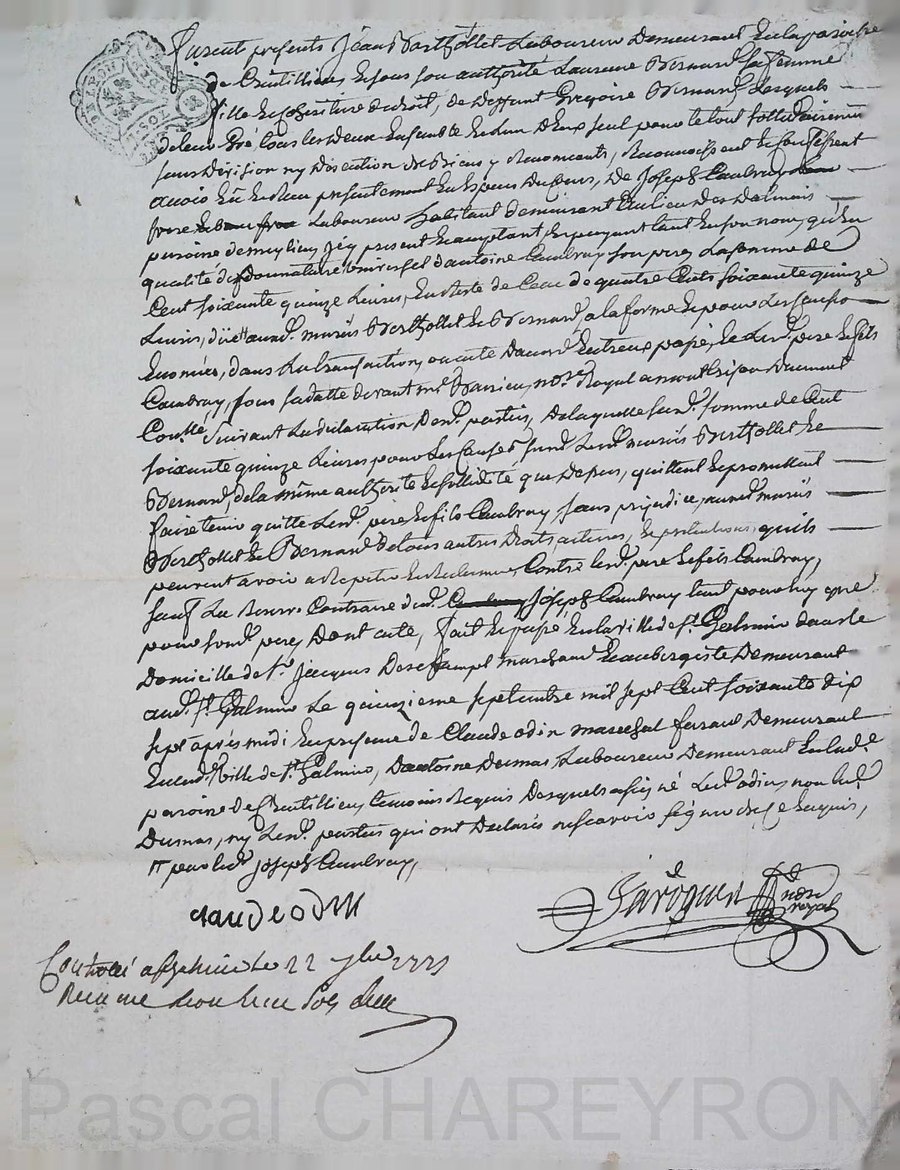 furent presents Jean Berthollet Laboureur Demeurant En la paroisse
de Chatillieu Et sous son authorité Laurence Bernard sa femme
fille Et Cohéritiere de droit, de Deffunt Gregoire Bernard Lesquels
de leur Gré tous les Deux Ensemble Et L'un D'eux seul pour le tout sollidairement
sans Division ny Discution de Biens y Renonceants, Reconnoissent Et Confessent
avoir Eu Et Reçu presentement En Especes Du Cours, De Joseph Cambray
Laboureur habitant demeurant Au lieu Des Dalmais
paroisse de icy present Et acceptant, Et payant tant En son nom qu'En
qualité de Donnataire Universel d'antoine Cambray son pere La somme de
Cent soixante quinze Livres, En Reste de Celle de quatre Cents soixante quinze
Livres, düe auxd. mariés Berthollet Et Bernard a la forme Et pour Les Causes
Enoncées, dans La transaction, ou acte D'accord Entr'eux passé, Et Lesd. pere Et fils
Cambray, sous sa datte devant me no.re Royal
Suivant La declaration Desd. parties, De laquelle susd. somme de Cent
soixante quinze Livres pour Les Causes susd. Lesd. mariés Berthollet Et
Bernard, de la même authorité Et sollidité que Dessus, quittent Et promettent
faire tenir quitte Lesd. pere Et fils Cambray sans prejudice, auxd. mariés
Berthollet Et Bernard de tous autres Droits, actions, Et pretentions, qu'ils
peuvent avoir a Repeter Contre Lesd. pere Et fils Cambray,
sauf La Reserve Contraire dud. Joseph Cambray tant pour luy que
pour sond. pere, Dont acte, fait Et passé En la ville de St. Galmier dans le
Domicille de Sr. Jacques Deschamps marchand Et aubergiste Demeurant
aud. St. Galmier Le quinzieme septembre mil sept Cent soixante dix
sept après midi En presence de Claude odin marechal ferrant Demeurant
En lad. Ville de St. Galmier, D'antoine Dumas, Laboureur Demeurant En lad.e
paroisse De Chatillieu, temoins Requis Desquels a signé Led. odin, non led.
Dumas, ny Lesd. parties qui ont Declarés ne scavoir signer de ce Enquis,
Joseph Cambray,
claude odin
no.re
royal
Controlé a St Galmier Le 22 7bre 1777
Reçu
Pascal CHAREYRON